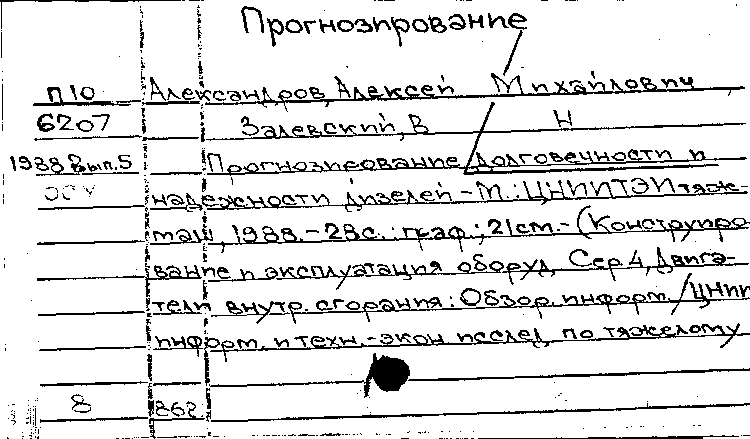 Прогнозирование
П10 Александров, Алексей Михайлович,
6207 Залевский, В Н
1988 Вып.5 Прогнозирование долговечности и
надежности дизелей - М.: ЦНИИТЭИтяж-
маш, 1988. - 28с.: граф.; 21см. - (Конструиро
вание и эксплуатация оборуд. Сер.4, Двига-
тели внутр. сгорания: Обзор. информ. / ЦНИИ
информ. и техн.-экон исслед. по тяжелому
8 862